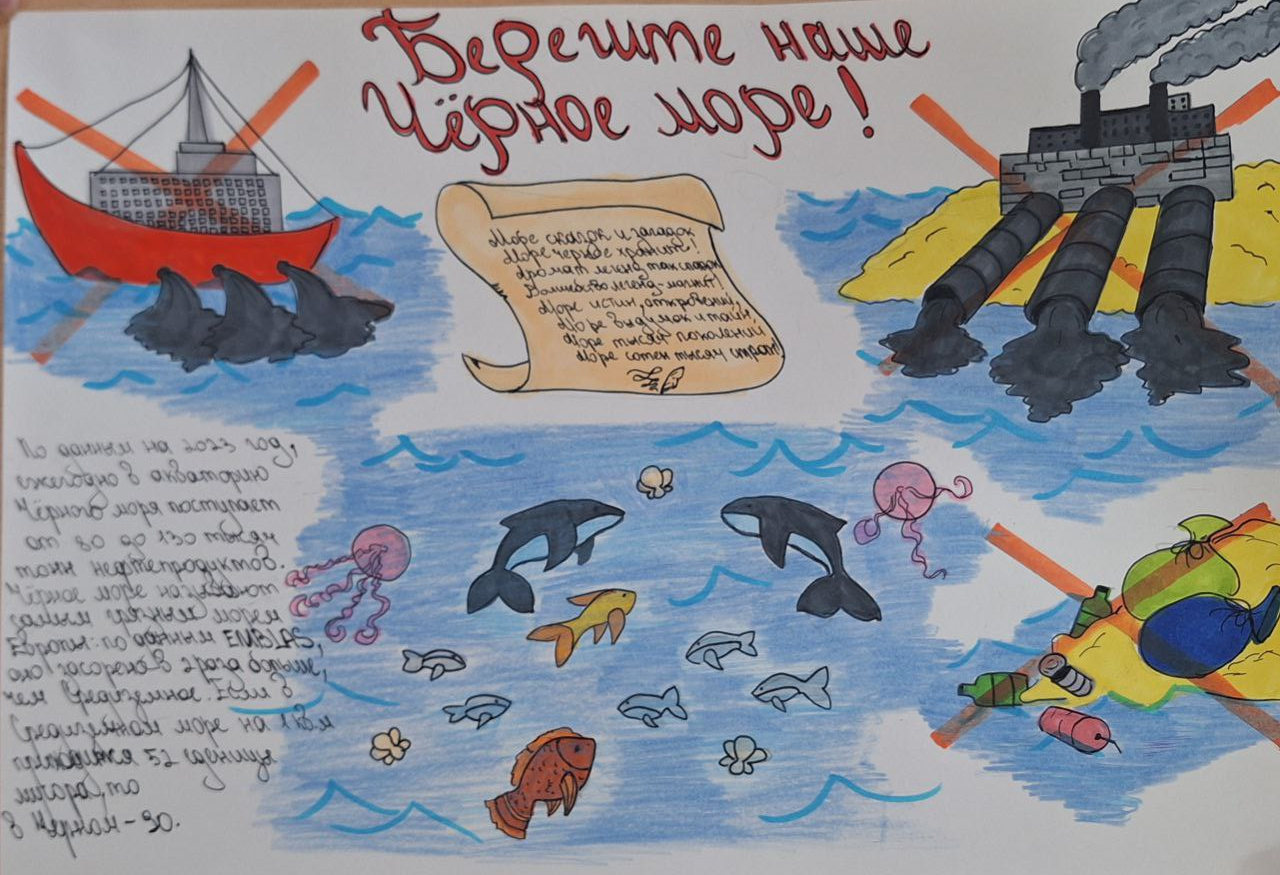 Берегите наше
Чёрное море!
Море сказок и загадок
Море черное хранит!
Аромат легенд так сладок
Волшебство легенд манит!
Море истин, откровений,
Море выдумок и тайн
Море тысяч поколений
Море сотен тысяч стран!
По данным на 2023 год,
ежегодно в акваторию
Чёрного моря поступает
от 80 до 130 тысяч
тонн нефтепродуктов.
Чёрное море называют
самым грязным морем
Европы: по данным EMBLAS,
оно засорено в 2 раза больше,
чем Средиземное. Если в
Средиземном море на 1 кв.м
приходится 52 единицы
мусора, то
в Чёрном - 90.